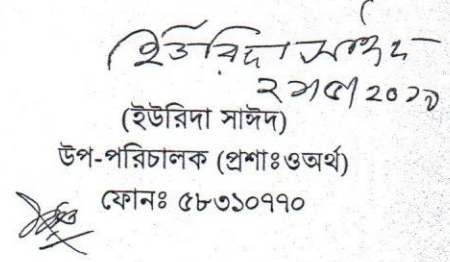 ইউরিদা সাঈদ
(ইউরিদা সাঈদ)
উপ-পরিচালক (প্রশাঃওঅর্থ)
ফোনঃ ৫৮৩১০৭৭০